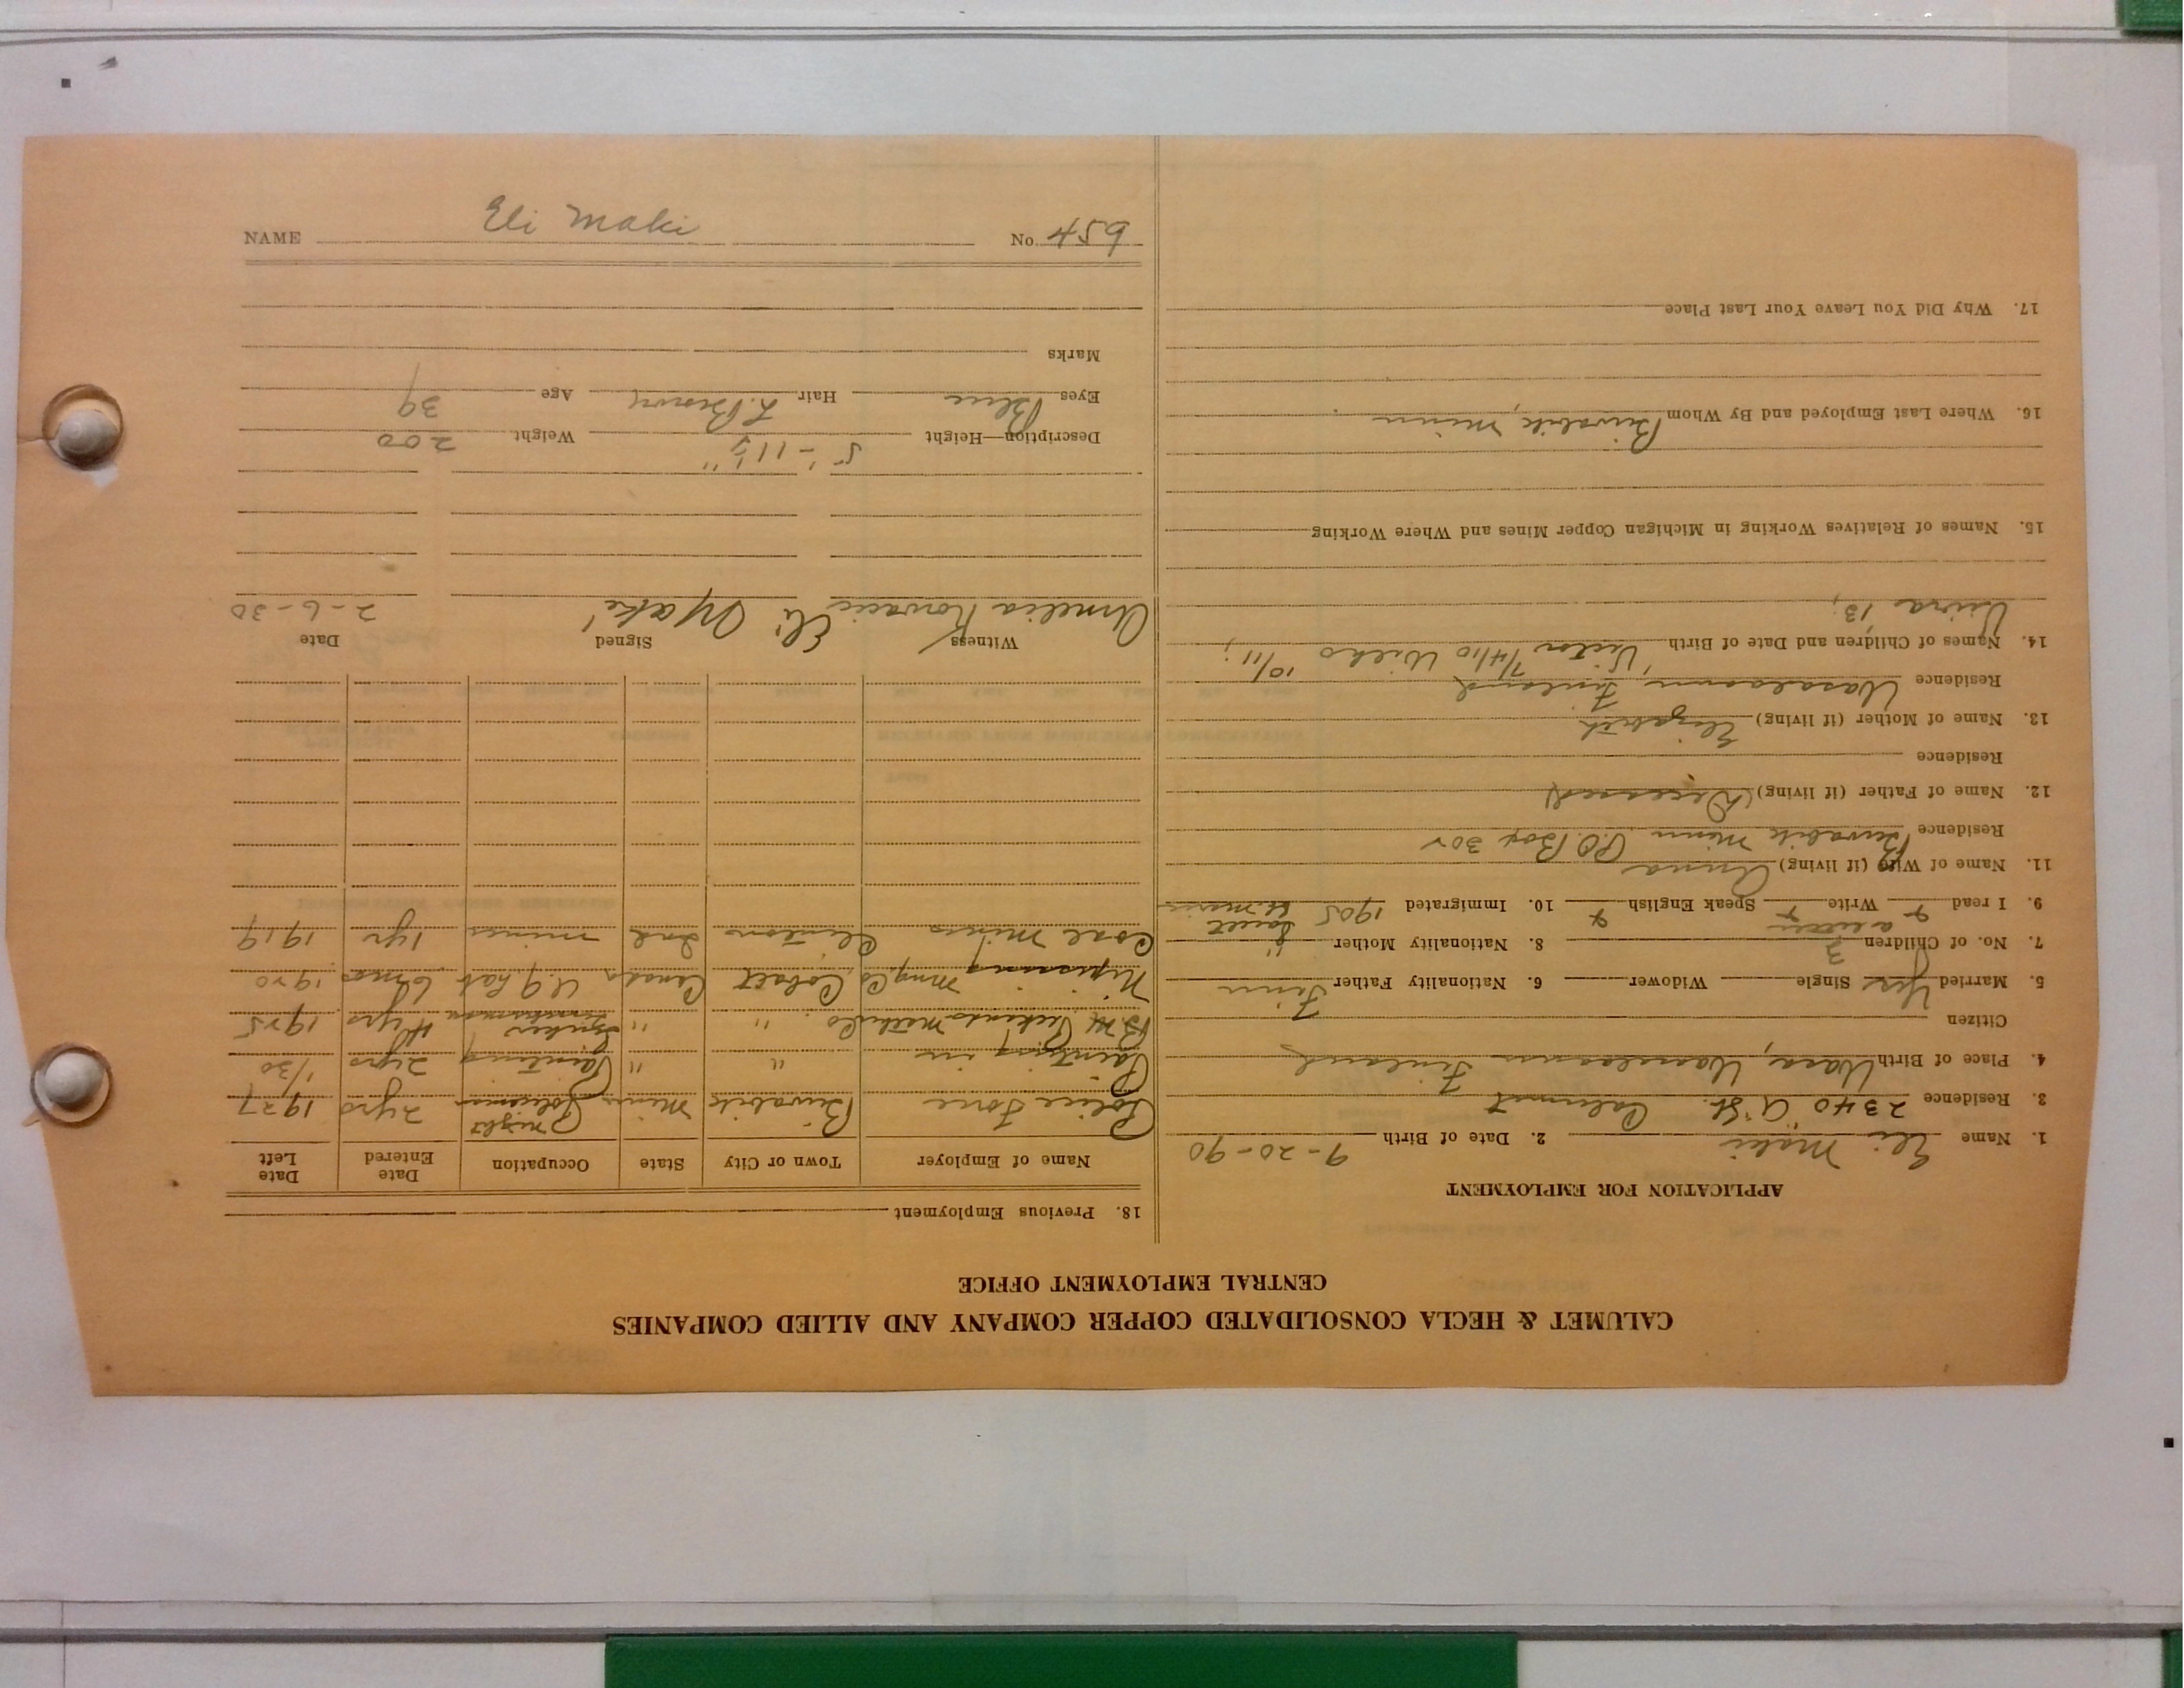 CALUMET & HECLA CONSOLIDATED COPPER COMPANY AND ALLIED COMPANIES
CENTRAL EMPLOYMENT OFFICE
APPLICATION FOR EMPLOYMENT
1. Name Eli Maki 2. Date of Birth 9-20-90
3. Residence 2340 "A" St. Calumet
4. Place of Birth Wasa, Finland
Citizen
5. Married Yes Single Widower 6. Nationality Father Finn
7. No. of Children 3 8. Nationality Mother "
9. I read Write Speak English 10. Immigrated 1905
11. Name of Wife (if living) Anna
Residence Biwabik Minn P.O. Box
12. Name of Father (if living) (Deceased)
Residence
13. Name of Mother (if living) Elizabeth
Residence Finland
14. Names of Children and Date of Birth Victor 7/4/10 Wilho 10/11;
13;
15. Names of Relatives Working in Michigan Copper Mines and Where Working
16. Where Last Employed and By Whom Biwabik, Minn
17. Why Did You Leave Your Last Place
18. Previous Employment
Name of Employer Town or City State Occupation Date Entered Date Left
Police Force Biwabik Minn night Policeman 2 yrs 1927
Painting " " Painting 2 yrs 1/30
" " 4 yrs 1925
Nipissing Mng Co Cobalt Canada U.G. Lab 6 mos 1920
Coal Mines Clinton Ind miner 1 yr 1919
Witness Signed Date
Amelia Eli Maki 2-6-30
Description—Height 5'-11½" Weight 200
Eyes Blue Hair L. Brown Age 39
Marks
NAME Eli Maki No.